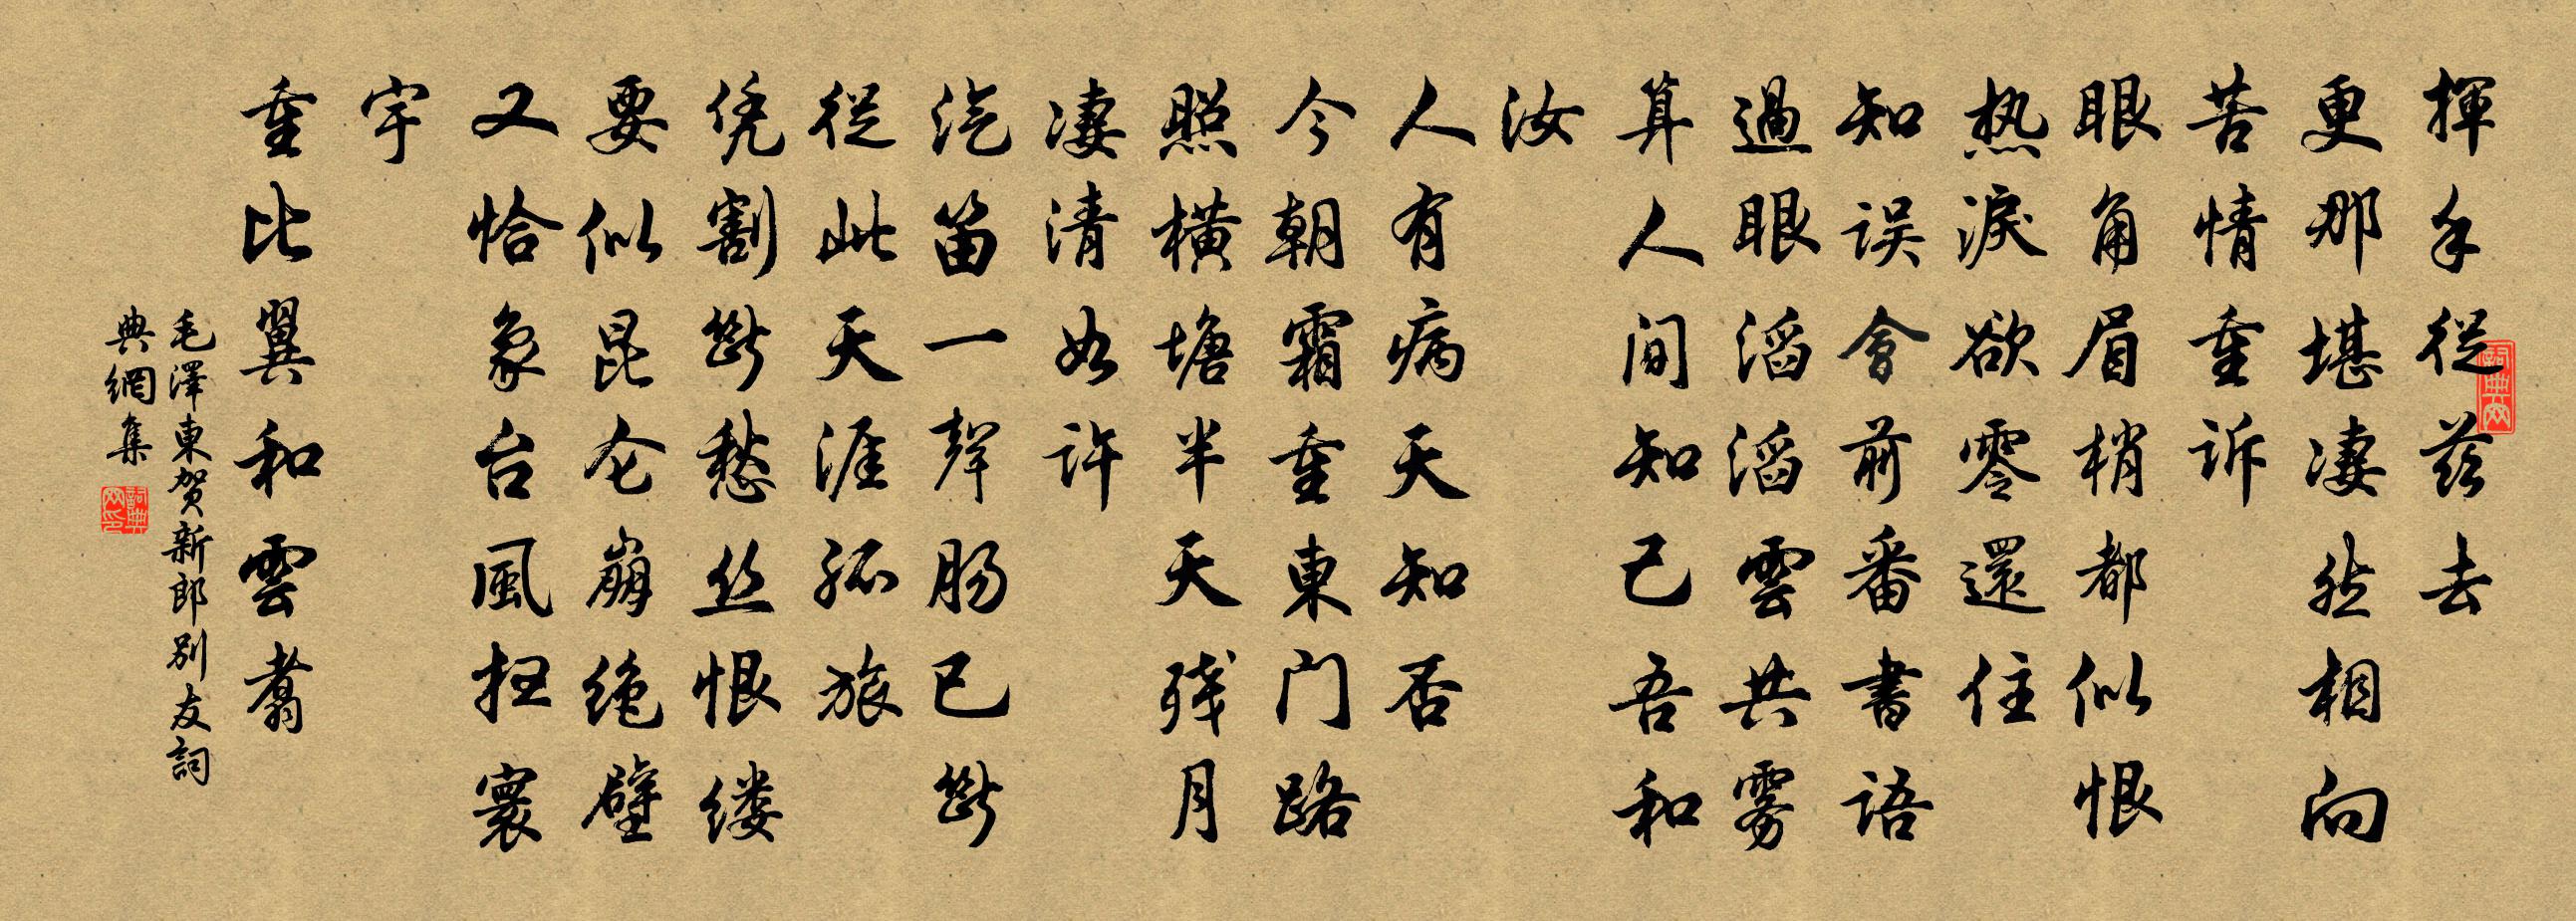 揮手從茲去
更那堪凄然相向
苦情重诉
眼角眉梢都似恨
热淚欲零還住
知误會前番書語
過眼滔滔雲共雾
算人间知己吾和
汝
人有病天知否
今朝霜重東门路
照橫塘半天残月
凄清如许
汽笛一聲肠已斷
從此天涯孤旅
凭割斷愁丝恨缕
要似昆仑崩绝壁
又恰象台風扫寰
宇
重比翼和雲翥
毛澤東贺新郎别友詞
典網集
詞典网
詞典网印